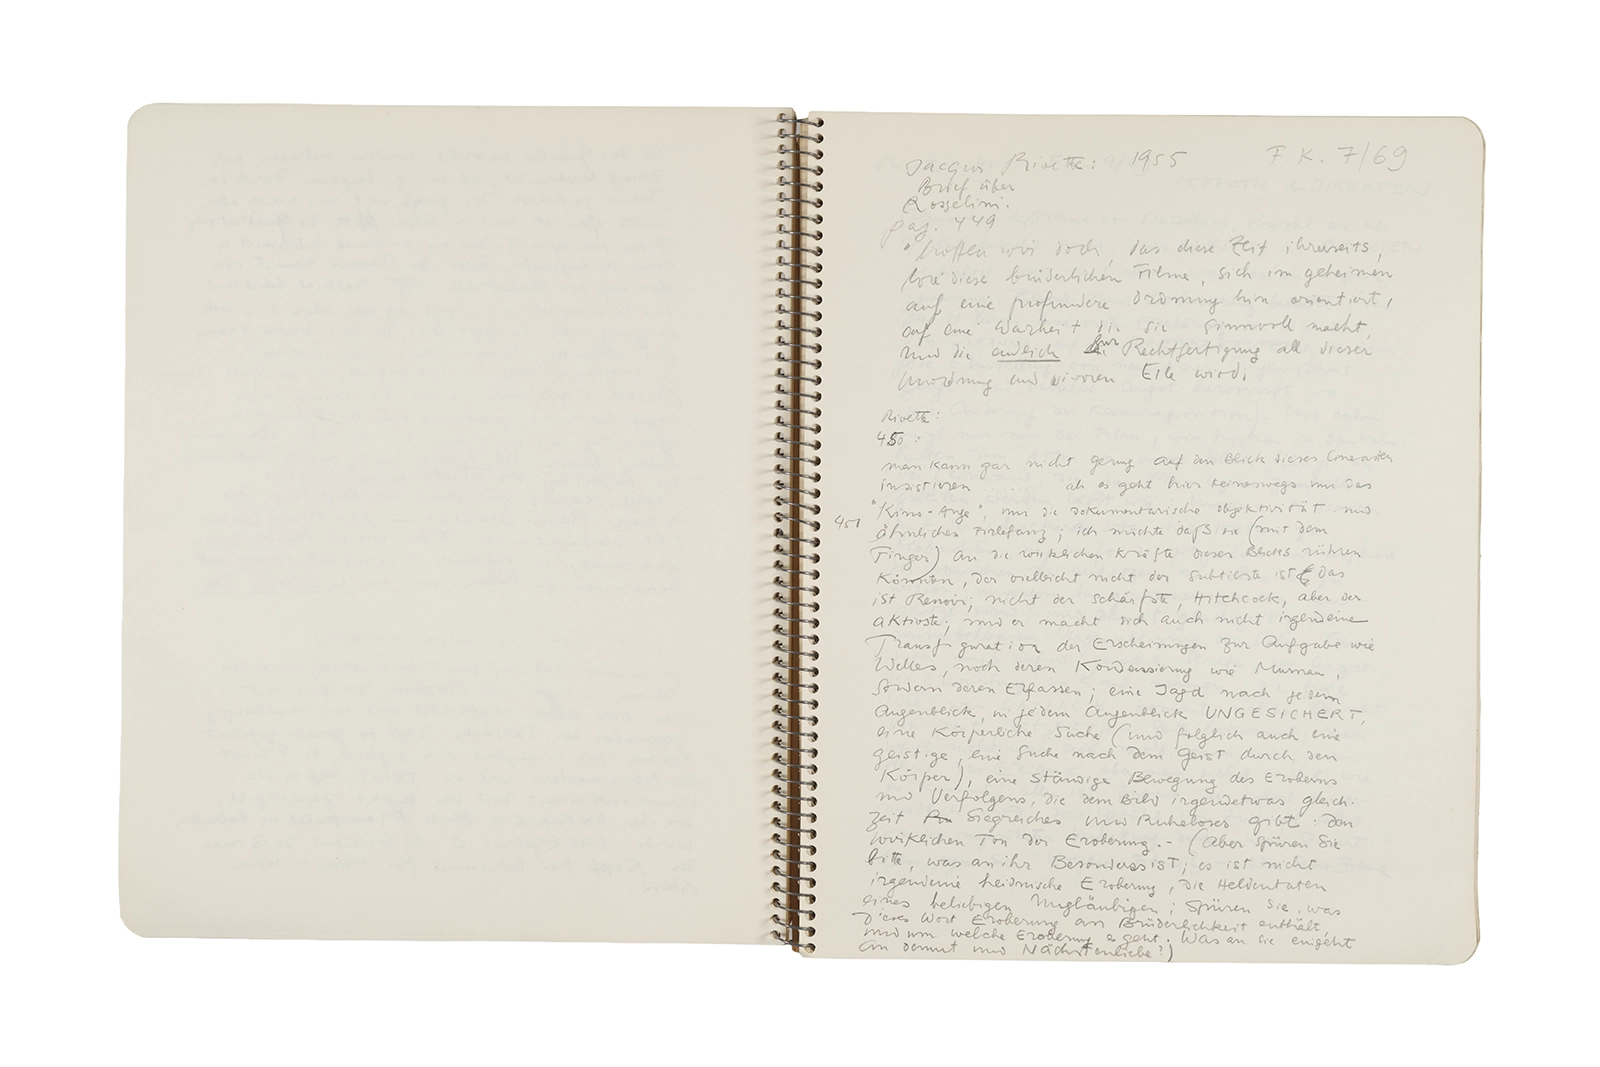 Jacques Rivette: 1955
F K. 7/69
Brief über
Rosselini.
pag. 449
"hoffen wir doch, das diese Zeit ihrerseits,
wie diese brüderlichen Filme, sich im geheimen
auf eine profundere Ordnung hin orientiert,
auf eine Warheit die sie sinnvoll macht,
und die endlich zur Rechtfertigung all dieser
Unordnung und Eile wird.
Rivette:
450:
man kann gar nicht genug auf den Blick dieses Cineasten
insistieren ... ah es geht hier keineswegs um das
451
"Kino-Auge", um die dokumentarische objektivität und
ähnlichen Firlefanz; ich möchte daß sie (mit dem
Finger) an die wirklichen Kräfte dieses Blickes rühren
könnten, der vielleicht nicht der subtilste ist das
ist Renoir, nicht der schärfste, Hitchcock, aber der
aktivste; und er macht sich auch nicht irgendeine
Transfiguration der Erscheinungen zur Aufgabe wie
Welles, noch deren Kondensierung wie Murnau,
sondern deren Erfassen; eine Jagd nach jedem
Augenblick, in jedem Augenblick UNGESICHERT,
eine körperliche Suche (und folglich auch eine
geistige, eine Suche nach dem Geist durch den
Körper), eine ständige Bewegung des Eroberns
und Verfolgens, die dem Bild irgendetwas gleich-
zeit Siegreiches und Ruheloses gibt: den
wirklichen Ton der Eroberung.- (Aber spüren Sie
bitte, was an ihr Besonderes ist; es ist nicht
irgendeine heidnische Eroberung, die Heldentaten
eines beliebigen Ungläubigen; spüren Sie, was
dieses Wort Eroberung an Brüderlichkeit enthält,
und um welche Eroberung es geht. Was an sie eingeht
an demut und Nächstenliebe?)